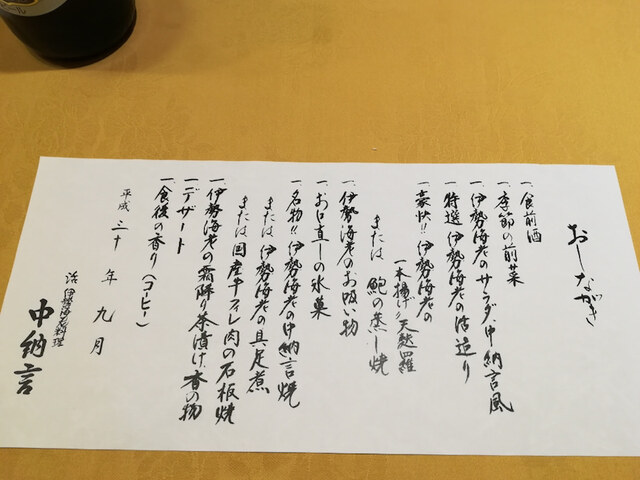 おしながき
一、食前酒
一、季節の前菜
一、伊勢海老のサラダ、中納言風
一、特選 伊勢海老の活造り
一、豪快!! 伊勢海老の
一本揚げ天麩羅
または 鮑の蒸し焼
一、伊勢海老のお吸い物
一、お口直しの氷菓
一、名物!! 伊勢海老の中納言焼
または 伊勢海老の具足煮
または 国産牛フィレ肉の石板焼
一、伊勢海老の霜降り茶漬け、香の物
一、デザート
一、食後の香り(コーヒー)
平成 三十 年 九 月
活伊勢海老料理
中納言